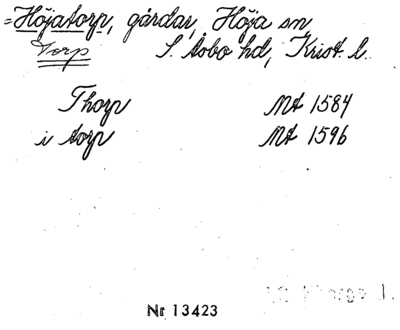 =Höjatorp, gårdar, Höja sn,
Torp S. Åsbo hd, Krist. l.
Thorp Mt 1584
i torp Mt 1596
Nr 13423